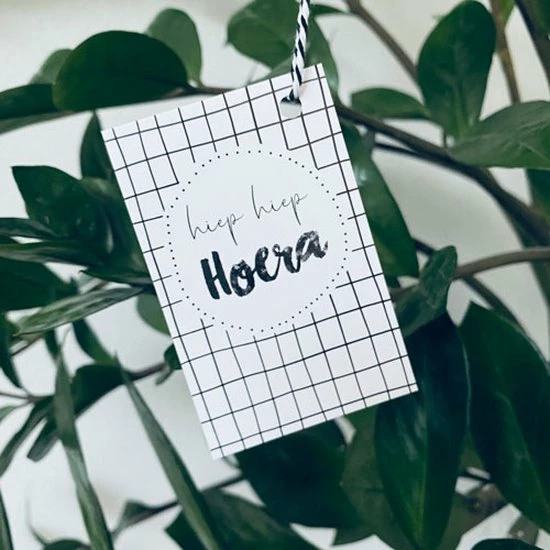 hiep hiep
Hoera